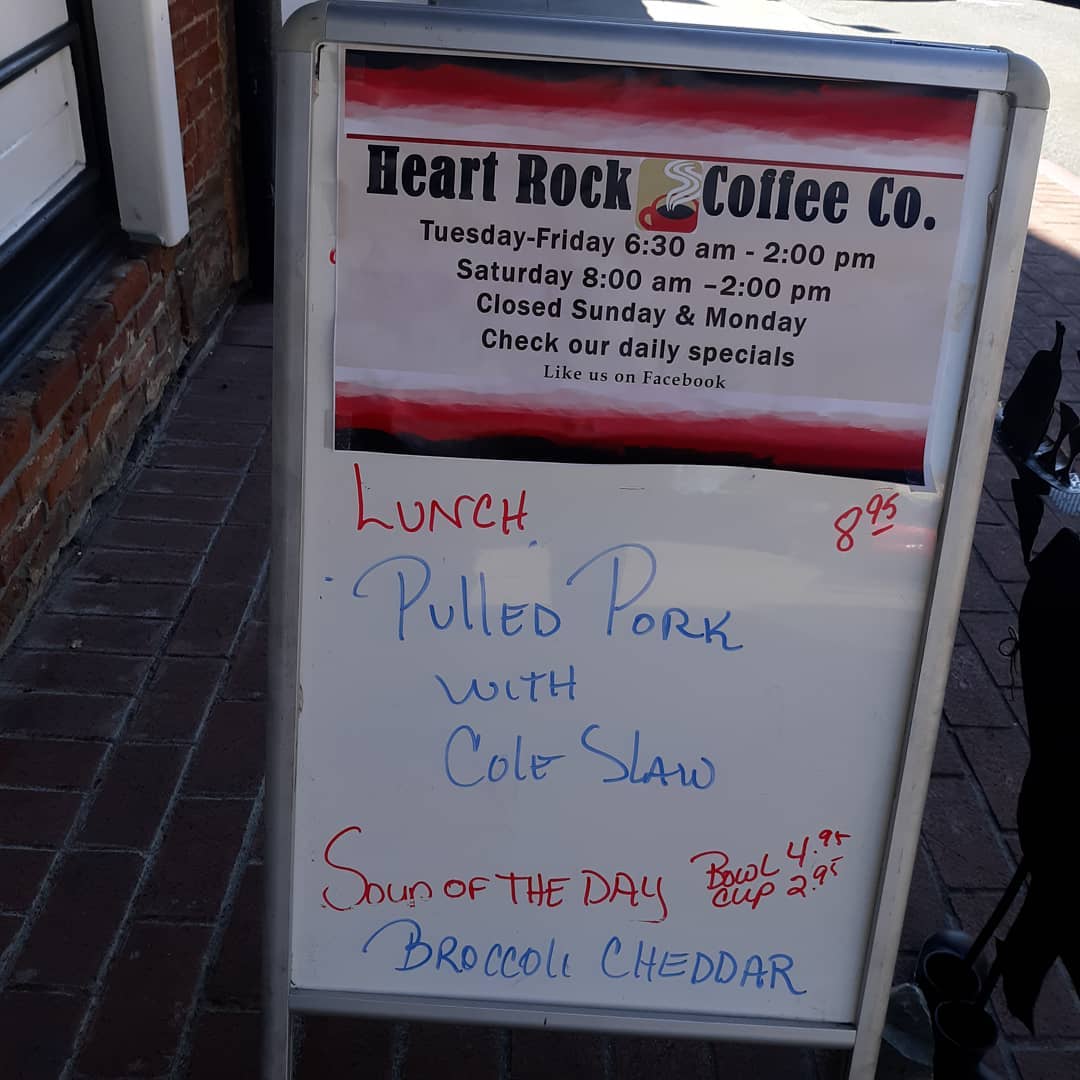 Heart Rock Coffee Co.
Tuesday-Friday 6:30 am - 2:00 pm
Saturday 8:00 am –2:00 pm
Closed Sunday & Monday
Check our daily specials
Like us on Facebook
LUNCH 8.95
PULLED PORK
WITH
COLE SLAW
SOUP OF THE DAY BOWL 4.95
CUP 2.95
BROCCOLI CHEDDAR